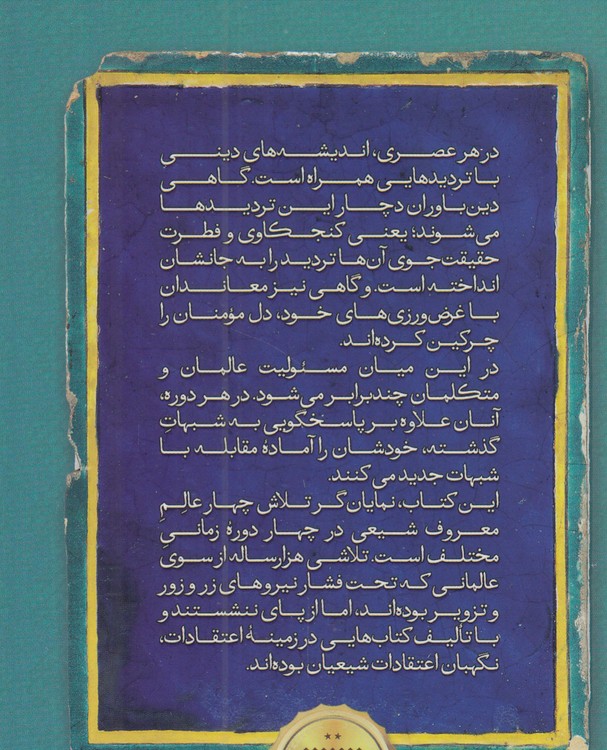 در هر عصری، اندیشه‌های دینی
با تردیدهایی همراه است. گاهی
دین‌باوران دچار این تردیدها
می‌شوند؛ یعنی کنجکاوی و فطرت
حقیقت‌جوی آن‌ها تردید را به جانشان
انداخته است. و گاهی نیز معاندان
با غرض‌ورزی‌های خود، دل مؤمنان را
چرکین کرده‌اند.
در این میان مسئولیت عالمان و
متکلمان چندبرابر می‌شود. در هر دوره،
آنان علاوه بر پاسخگویی به شبهاتِ
گذشته، خودشان را آمادهٔ مقابله با
شبهات جدید می‌کنند.
این کتاب، نمایان‌گر تلاش چهار عالمِ
معروف شیعی در چهار دورهٔ زمانیِ
مختلف است. تلاشی هزارساله از سوی
عالمانی که تحت فشار نیروهای زر و زور
و تزویر بوده‌اند، اما از پای ننشستند و
با تألیف کتاب‌هایی در زمینهٔ اعتقادات،
نگهبان اعتقادات شیعیان بوده‌اند.